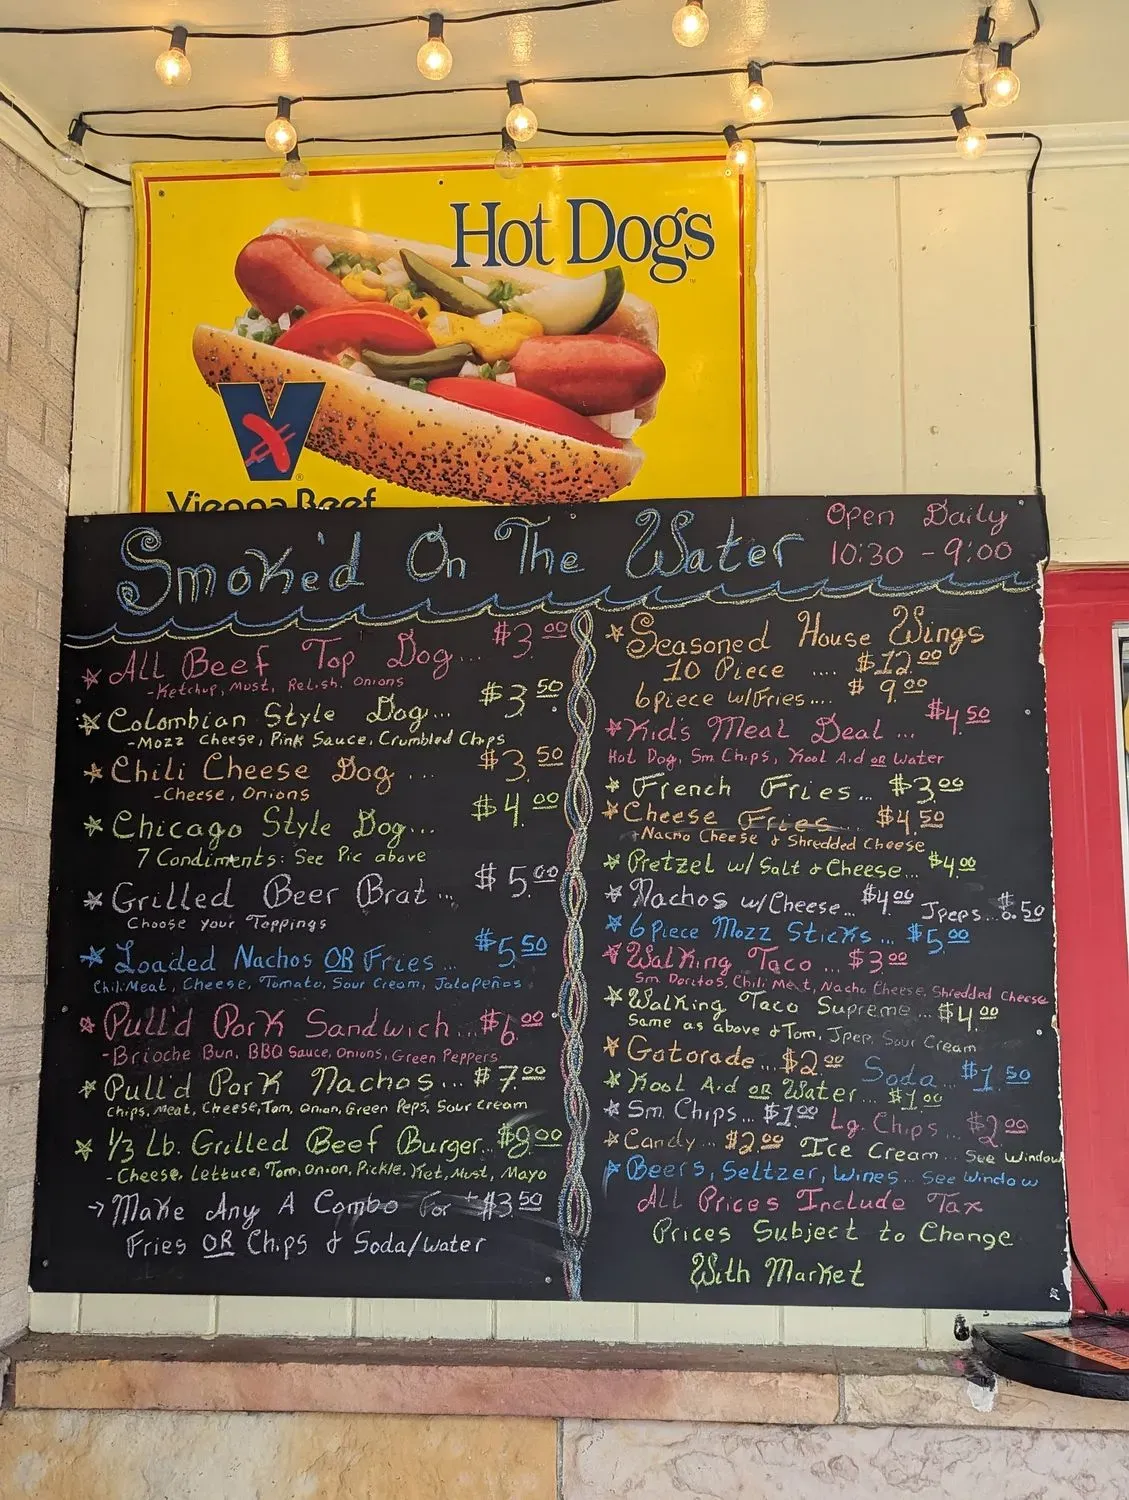 Hot Dogs
Vienna Beef
Smok'd On The Water
Open Daily
10:30 - 9:00
All Beef Top Dog... $3.00
-Ketchup, Must, Relish, Onions
Colombian Style Dog... $3.50
-Mozz Cheese, Pink Sauce, Crumbled Chips
Chili Cheese Dog .... $3.50
-Cheese, Onions
Chicago Style Dog... $4.00
7 Condiments: See Pic above
Grilled Beer Brat... $5.00
Choose your Toppings
Loaded Nachos OR Fries... $5.50
Chili Meat, Cheese, Tomato, Sour Cream, Jalapeños
Pull'd Pork Sandwich... $6.00
-Brioche Bun, BBQ Sauce, Onions, Green Peppers
Pull'd Pork Nachos... $7.00
Chips, Meat, Cheese, Tom, Onion, Green Peps, Sour Cream
1/3 Lb. Grilled Beef Burger.. $8.00
-Cheese, Lettuce, Tom, Onion, Pickle, Ket, Must, Mayo
→ Make Any A Combo For + $3.50
Fries OR Chips & Soda/Water
Seasoned House Wings
10 Piece .... $12.00
6 piece w/Fries.... $9.00
Kid's Meal Deal ... $4.50
Hot Dog, Sm Chips, Kool Aid or Water
French Fries... $3.00
Cheese Fries... $4.50
Nacho Cheese & Shredded Cheese
Pretzel w/ Salt & Cheese... $4.00
Nachos w/Cheese... $4.00 Jpeps... $.50
6 Piece Mozz Sticks... $5.00
Walking Taco... $3.00
Sm Doritos, Chili Meat, Nacho Cheese, Shredded Cheese
Walking Taco Supreme... $4.00
Same as above & Tom, Jpep, Sour Cream
Gatorade... $2.00 Soda... $1.50
Kool Aid OR Water... $1.00
Sm. Chips... $1.00 Lg. Chips... $2.00
Candy... $2.00 Ice Cream... See Window
Beers, Seltzer, Wines... See Window
All Prices Include Tax
Prices Subject to Change
With Market